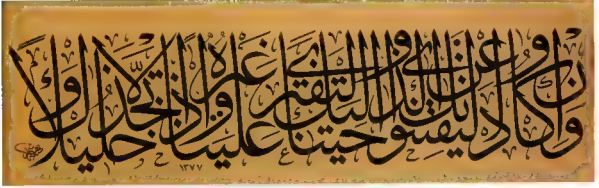 وإن كادوا ليفتنونك عن الذي أوحينا إليك لتفتري علينا غيره وإذا لاتخذوك خليلا
١٣٧٧